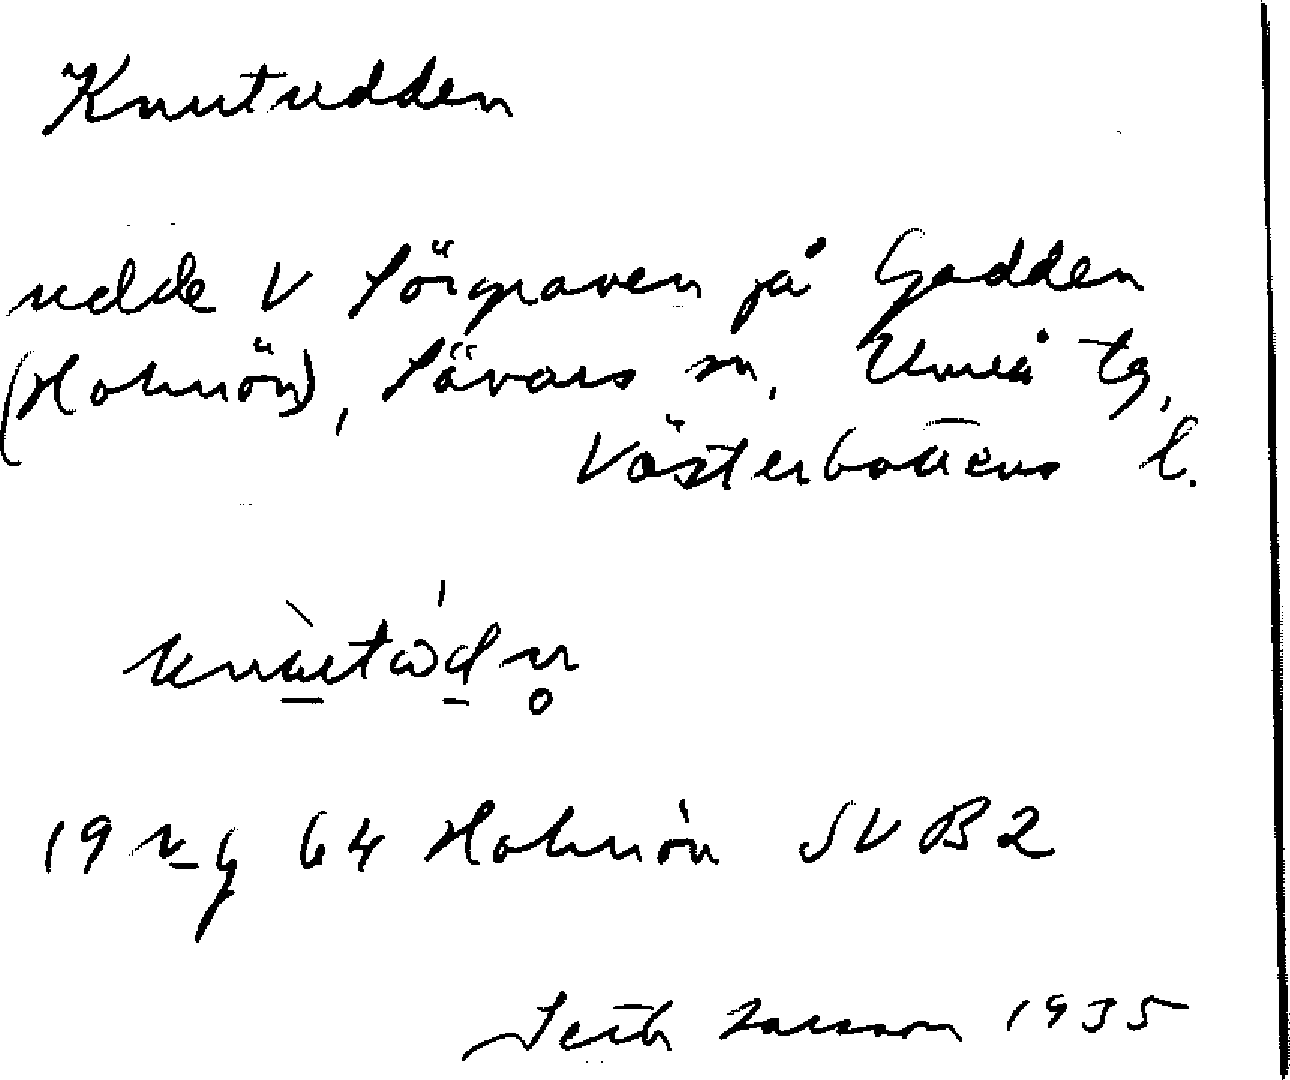 Knutudden
udde V Sörgraven på Gadden
(Holmön), Sävars sn, Umeå tg,
Västerbottens l.
19 64 Holmön SV B2
Seth Larsson 1935